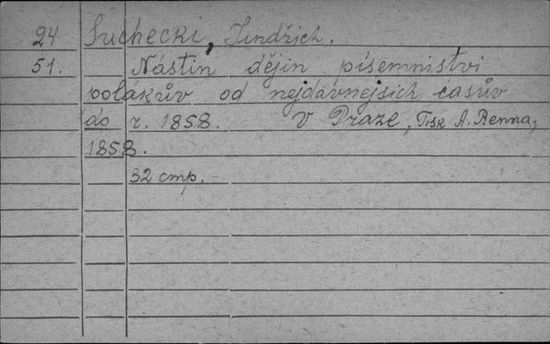 24 Suchecki, Jindřich.
51. Nástin dějin písemnistvi
polákův od nejdávnejsich časův
do r. 1858. V Praze, Tisk A. Renna,
1858.
32 стр.